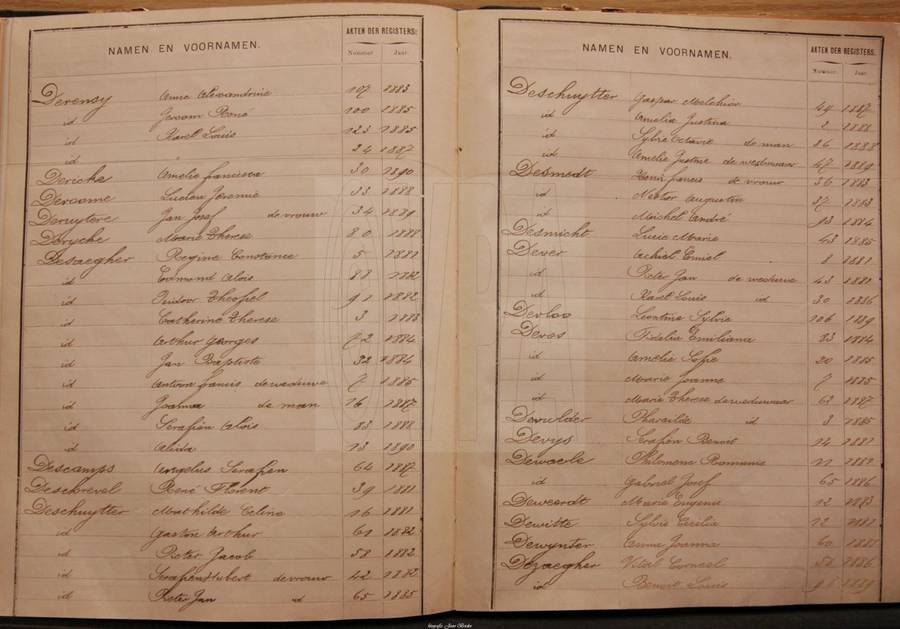 NAMEN EN VOORNAMEN.
AKTEN DER REGISTERS:
Nummer. Jaar.
Derensy Anna Alexandrine 107 1883
id Jeroom René 100 1885
id Karel Louis 123 1885
id 24 1887
Dericke Amelie francisca 30 1890
Deroome Lucien Jeremie 33 1888
Deruytere Jan Josef de vrouw 34 1889
Derycke Marie Therese 20 1888
Desaegher Regine Constance 5 1881
id Edmond Alois 88 1882
id Isidoor Theofiel 91 1882
id Catherine Therese 3 1883
id Arthur Georges 72 1884
id Jan Baptiste 32 1884
id Antoon francis de weduwe 7 1885
id Joanna de man 16 1887
id Serafien Alois 83 1888
id Alida 13 1890
Descamps Angelus Serafien 64 1887
Deschrevel René Florent 39 1881
Deschuytter Mathilde Celine 16 1881
id Gaston Arthur 61 1882
id Pieter Jacob 58 1882
id Serafien Hubert de vrouw 42 1882
id Pieter Jan id 65 1885
NAMEN EN VOORNAMEN.
AKTEN DER REGISTERS.
Nummer. Jaar.
Deschuytter Gaspar Melchior 49 1887
id Amelia Justina 2 1888
id Sylvie Octavie de man 26 1888
id Amelie Justine de weduwaar 47 1889
Desmedt Henri francis de vrouw 36 1883
id Nestor Augustin 37 1883
id Michel André 93 1884
Desmicht Lucie Marie 43 1885
Dever Achiel Emiel 8 1881
id Pieter Jan de weduwe 43 1881
id Karel Louis id 30 1886
Devloo Leontine Sylvie 106 1889
Devos Fidelia Emiliana 83 1884
id Amelie Sofie 20 1885
id Marie Joanna 7 1885
id Marie Therese de weduwaar 63 1887
Dewulder Pharailde id 3 1885
Devys Serafien Benoit 14 1881
Dewaele Philomene Romanie 11 1882
id Gabriel Josef 65 1886
Deweerdt Marie Eugenie 12 1883
Dewitte Sylvie Cecilia 12 1881
Dewynter Anna Joanna 60 1881
Dezaegher Vital Corneel 58 1886
id Benoit Louis 1889